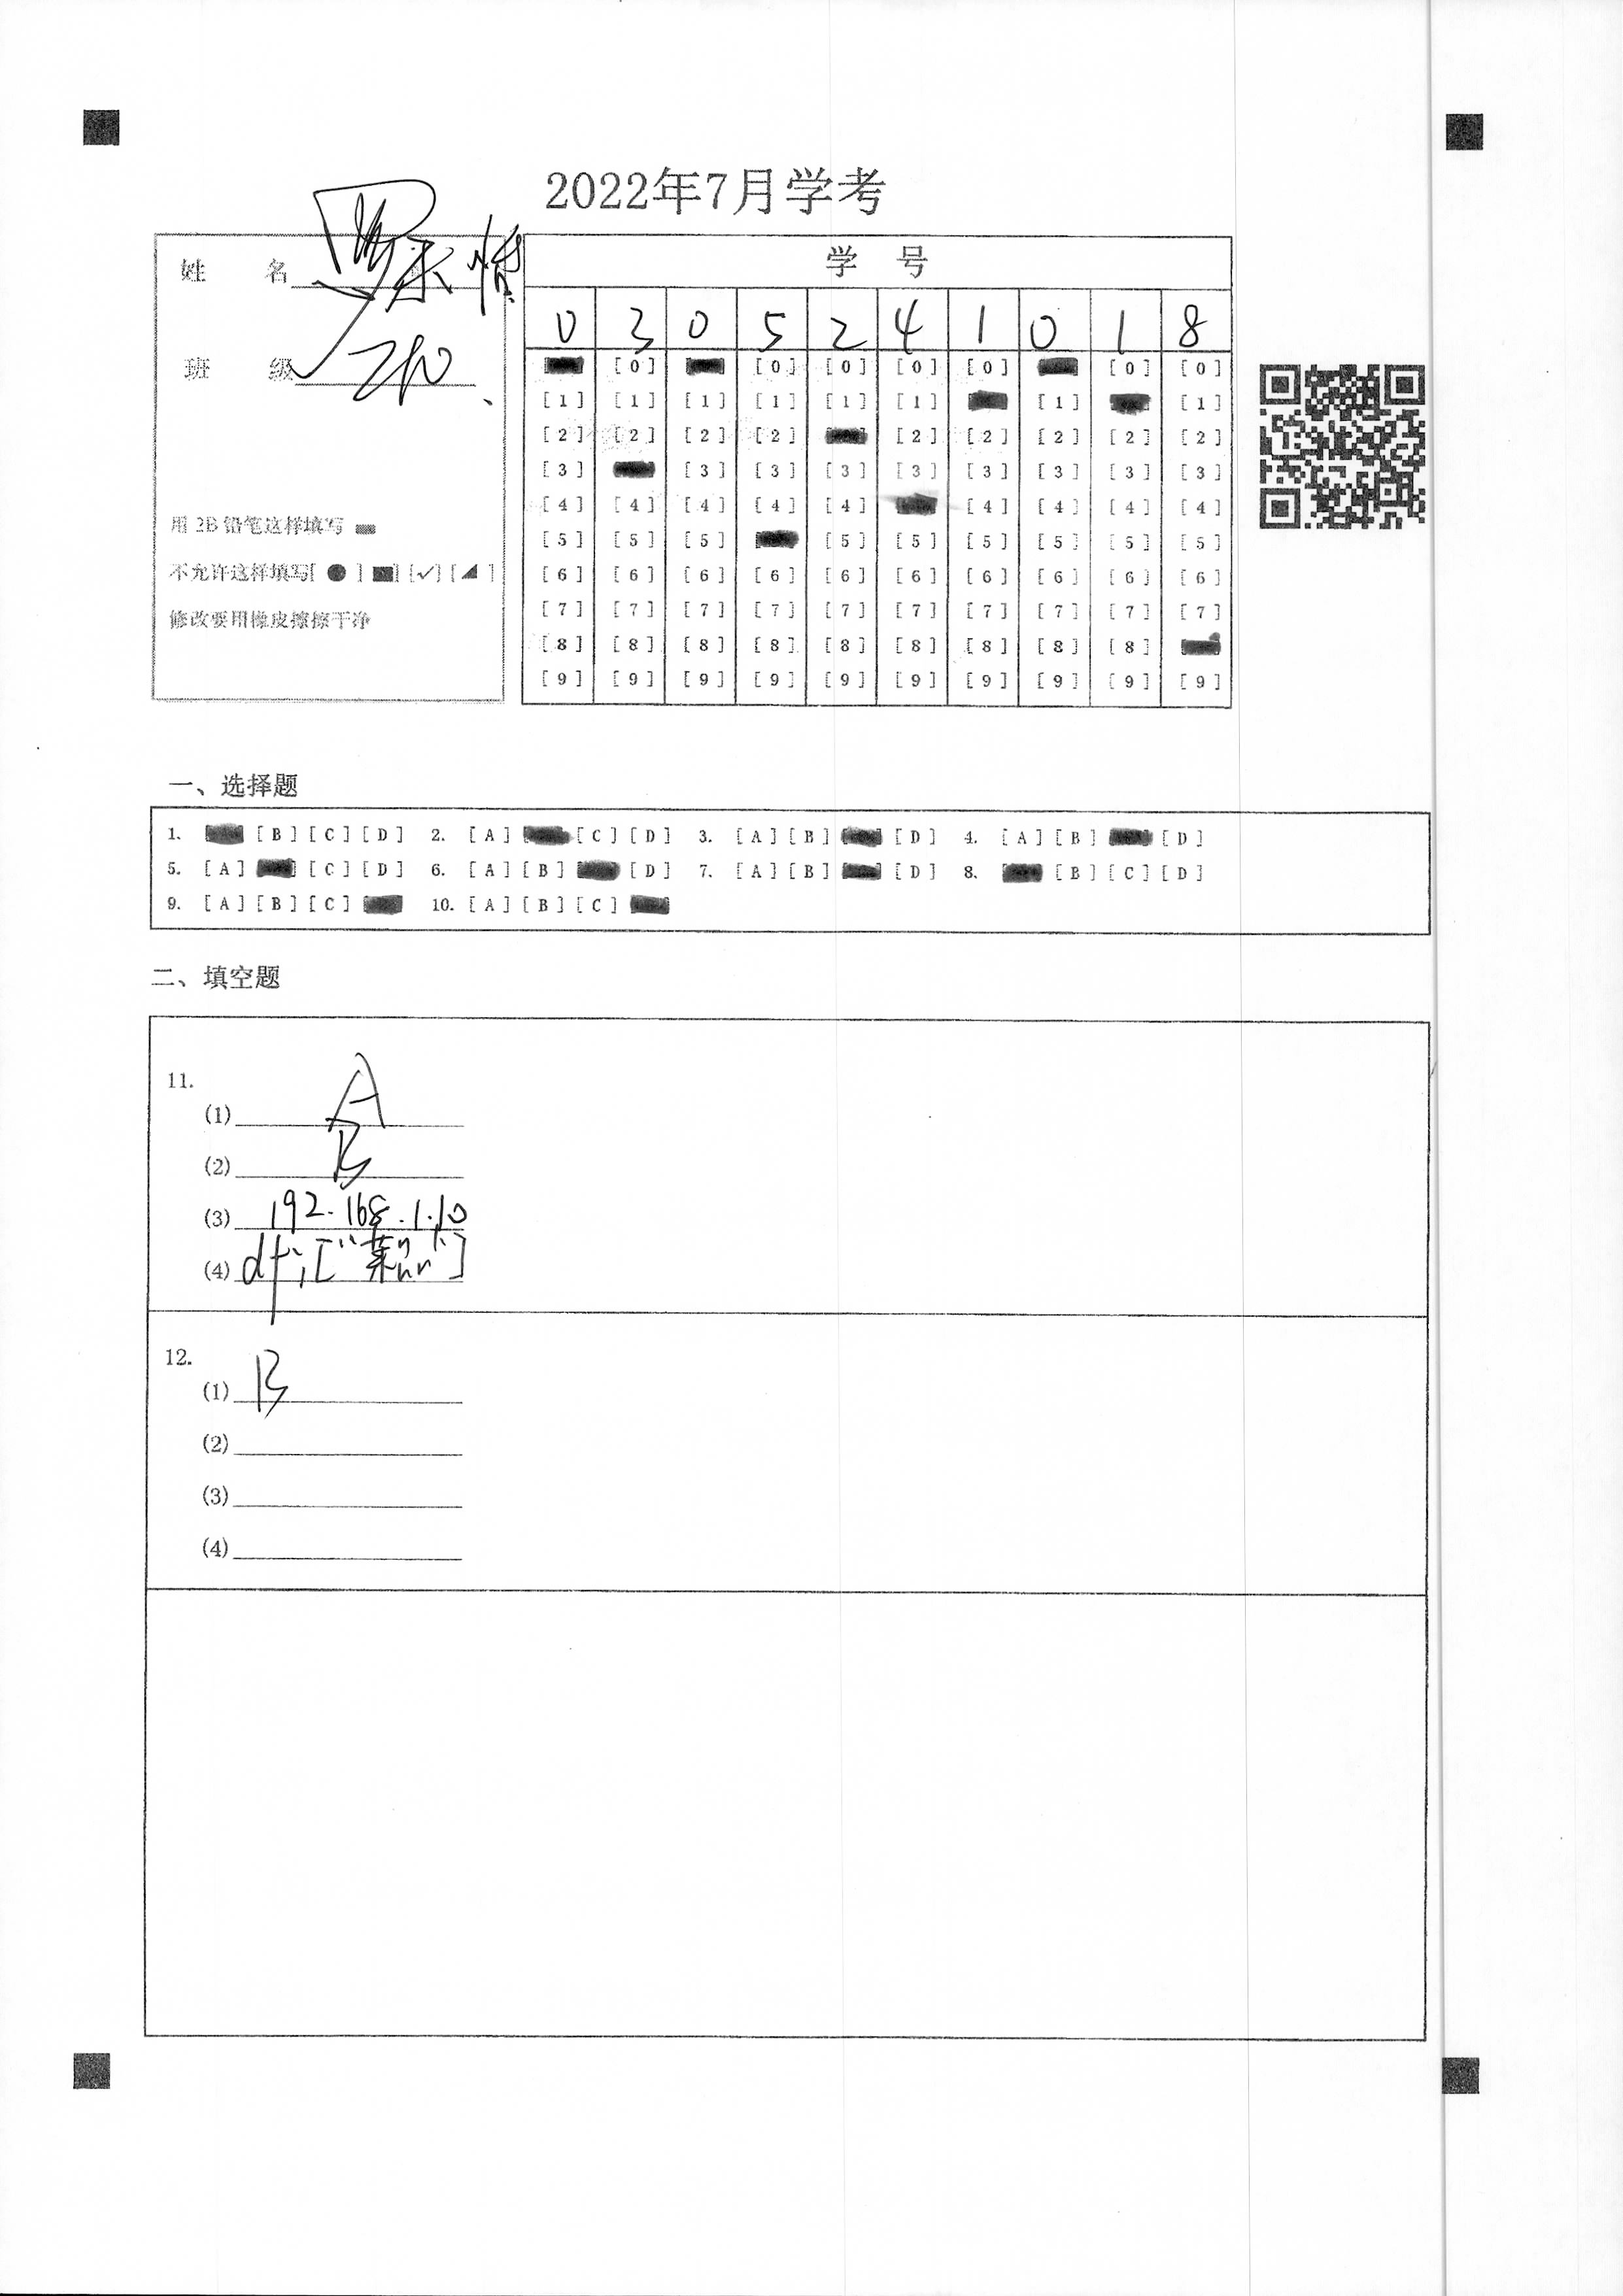 2022年7月学考
姓 名
班 级 210
用 2B 铅笔这样填写
不允许这样填写[ ● ] [■] [✓] [◢ ]
修改要用橡皮擦擦干净
学 号
0 3 0 5 2 4 1 0 1 8
[0] [0] [0] [0] [0] [0] [0]
[1] [1] [1] [1] [1] [1] [1] [1]
[2] [2] [2] [2] [2] [2] [2] [2] [2]
[3] [3] [3] [3] [3] [3] [3] [3] [3]
[4] [4] [4] [4] [4] [4] [4] [4] [4]
[5] [5] [5] [5] [5] [5] [5] [5] [5]
[6] [6] [6] [6] [6] [6] [6] [6] [6] [6]
[7] [7] [7] [7] [7] [7] [7] [7] [7] [7]
[8] [8] [8] [8] [8] [8] [8] [8] [8]
[9] [9] [9] [9] [9] [9] [9] [9] [9] [9]
一、选择题
1. [B] [C] [D] 2. [A] [C] [D] 3. [A] [B] [D] 4. [A] [B] [D]
5. [A] [C] [D] 6. [A] [B] [D] 7. [A] [B] [D] 8. [B] [C] [D]
9. [A] [B] [C] 10. [A] [B] [C]
二、填空题
11.
(1) A
(2) B
(3) 192.168.1.10
(4)
12.
(1) B
(2)
(3)
(4)